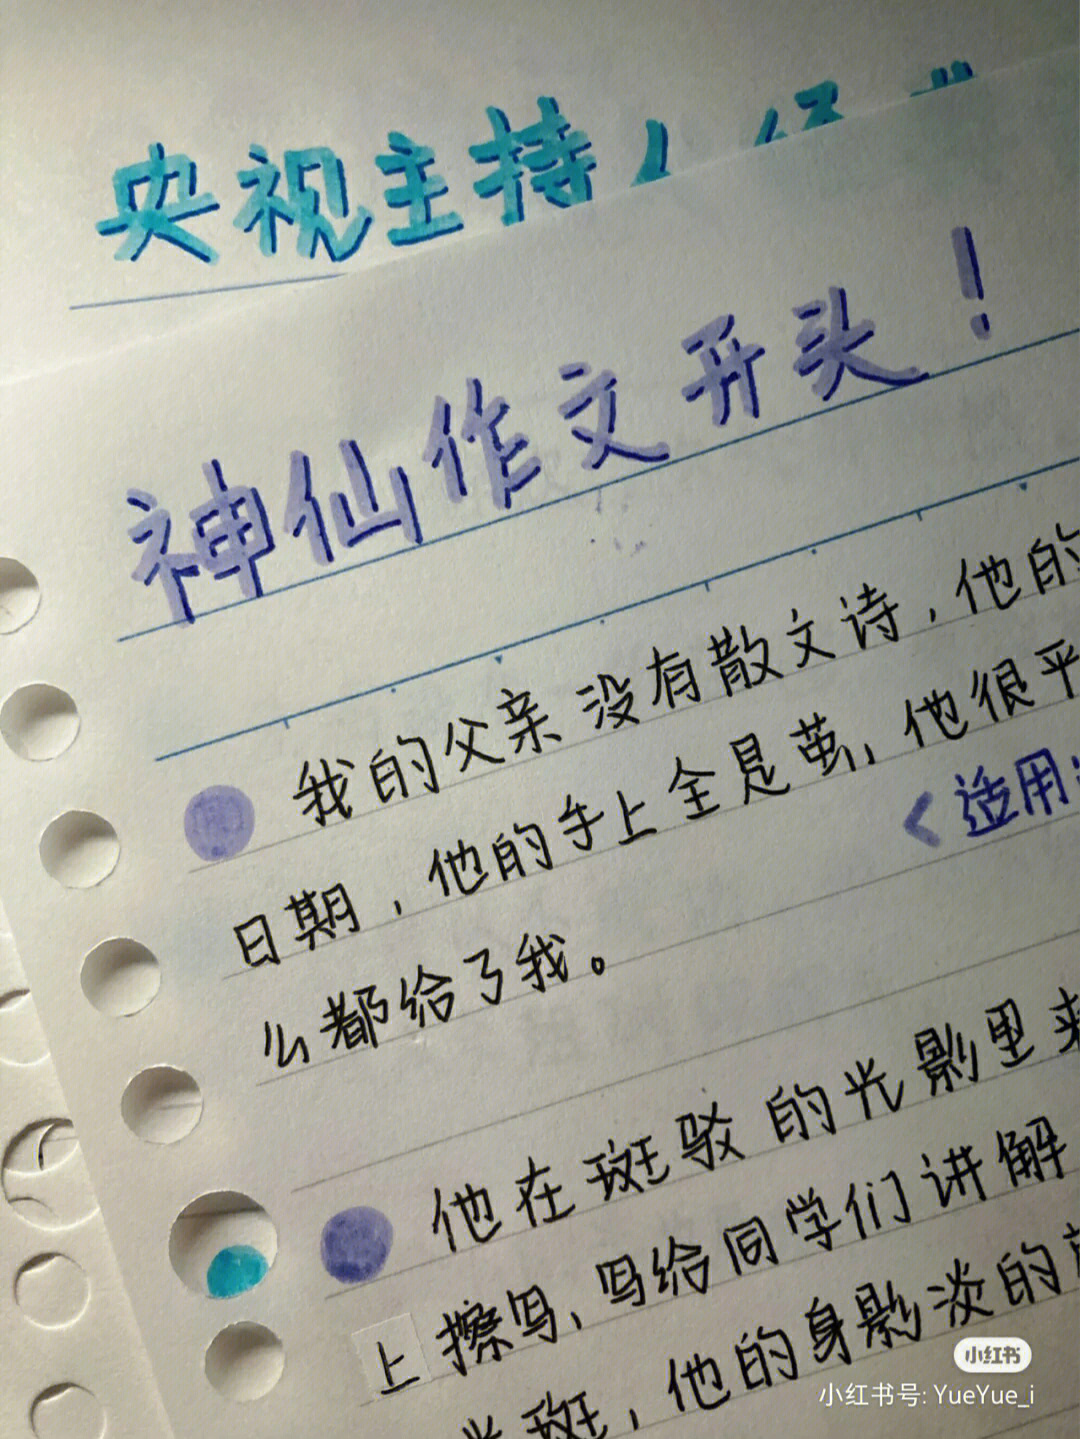 央视主持人
神仙作文开头！
我的父亲没有散文诗，他的
日期，他的手上全是茧，他很平
<适用
么都给了我。
他在斑驳的光影里来
上擦写、写给同学们讲解
光斑，他的身影淡的
小红书
小红书号: YueYue_i